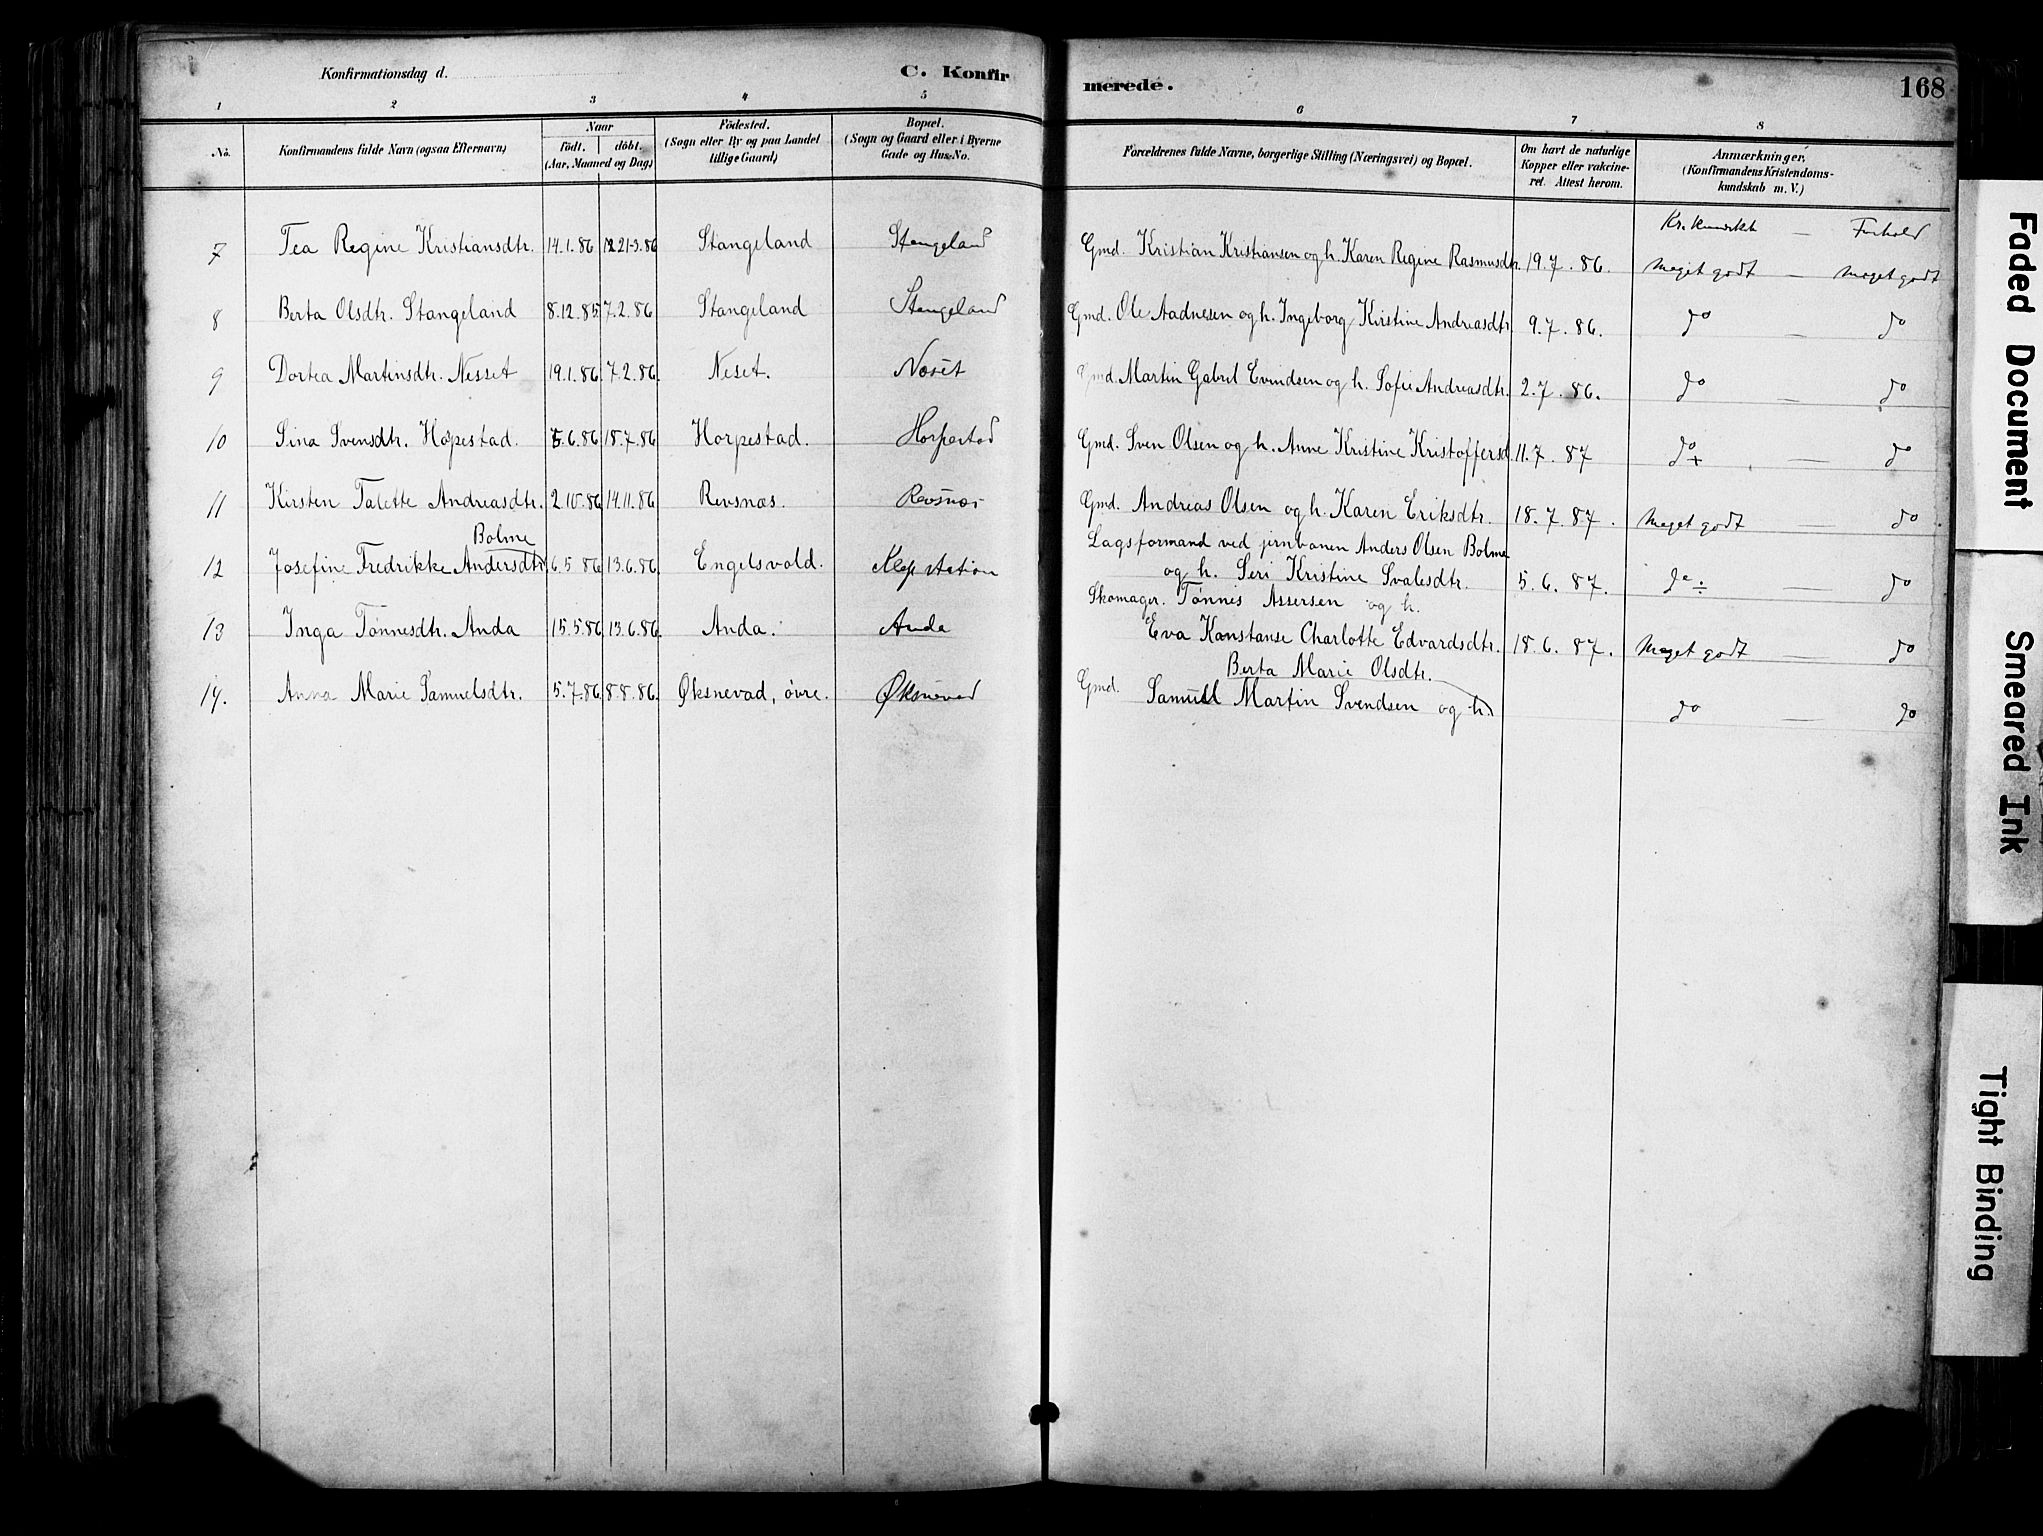 Konfirmationsdag d.
C. Konfirmerede.
168
1 2 3 4 5 6 7 8
No. Konfirmandens fulde Navn (ogsaa Efternavn) Naar födt. döbt. (Aar, Maaned og Dag) Födested. (Sogn eller By og paa Landet tillige Gaard) Bopæl. (Sogn og Gaard eller i Byerne Gade og Hus-No. Forældrenes fulde Navne, borgerlige Stilling (Næringsvei) og Bopæl. Om havt de naturlige Kopper eller vakcineret. Attest herom. Anmærkninger. (Konfirmandens Kristendomskundskab m. V.)
Kr. kundskb — Forhold
7 Tea Regine Kristiansdtr. 14.1.86 21-3.86 Stangeland Stangeland Gmd. Kristian Kristiansen og h. Karen Regine Rasmusdtr. 19.7.86. Meget godt — Meget godt
8 Berta Olsdtr. Stangeland 8.12.85 7.2.86 Stangeland Stangeland Gmd. Ole Aadnesen og h. Ingeborg Kirstine Andreasdtr 9.7.86. do — do
9 Dortea Martinsdtr. Nesset 19.1.86. 7.2.86. Neset. Neset Gmd. Martin Gabriel Evindsen og h. Sofie Andreasdtr. 2.7.86. do — do
10 Sina Svensdtr. Hopestad. 5.6.86 18.7.86 Horpestad. Horpestad Gmd. Sven Olsen og h. Anne Kristine Kristoffersd. 11.7.87 do + — do
11 Kirsten Talette Andreasdtr. 2.10.86 14.11.86 Revsnæs. Revsnæs Gmd. Andreas Olsen og h. Karen Eriksdtr. 18.7.87. Meget godt — do.
12 Josefine Fredrikke Andersdtr Bolme 6.5 86 13.6.86. Engelsvold. Klep station Lagsformand ved jernbanen Anders Olsen Bolme
og h. Seri Kristine Svalesdtr. 5.6.87. do ÷ do
13 Inga Tønnesdtr. Anda 15.5.86 13.6.86. Anda. Anda Skomager. Tønnes Assersen og h.
Eva Konstanse Charlotte Edvardsdtr. 18.6.87. Meget godt — do
Berta Marie Olsdtr.
14. Anna Marie Samuelsdtr. 5.7.86. 8.8.86. Øksnevad, övre. Øksnevad Gmd. Samuel Martin Svendsen og h. do — do
Faded Document
Smeared Ink
Tight Binding